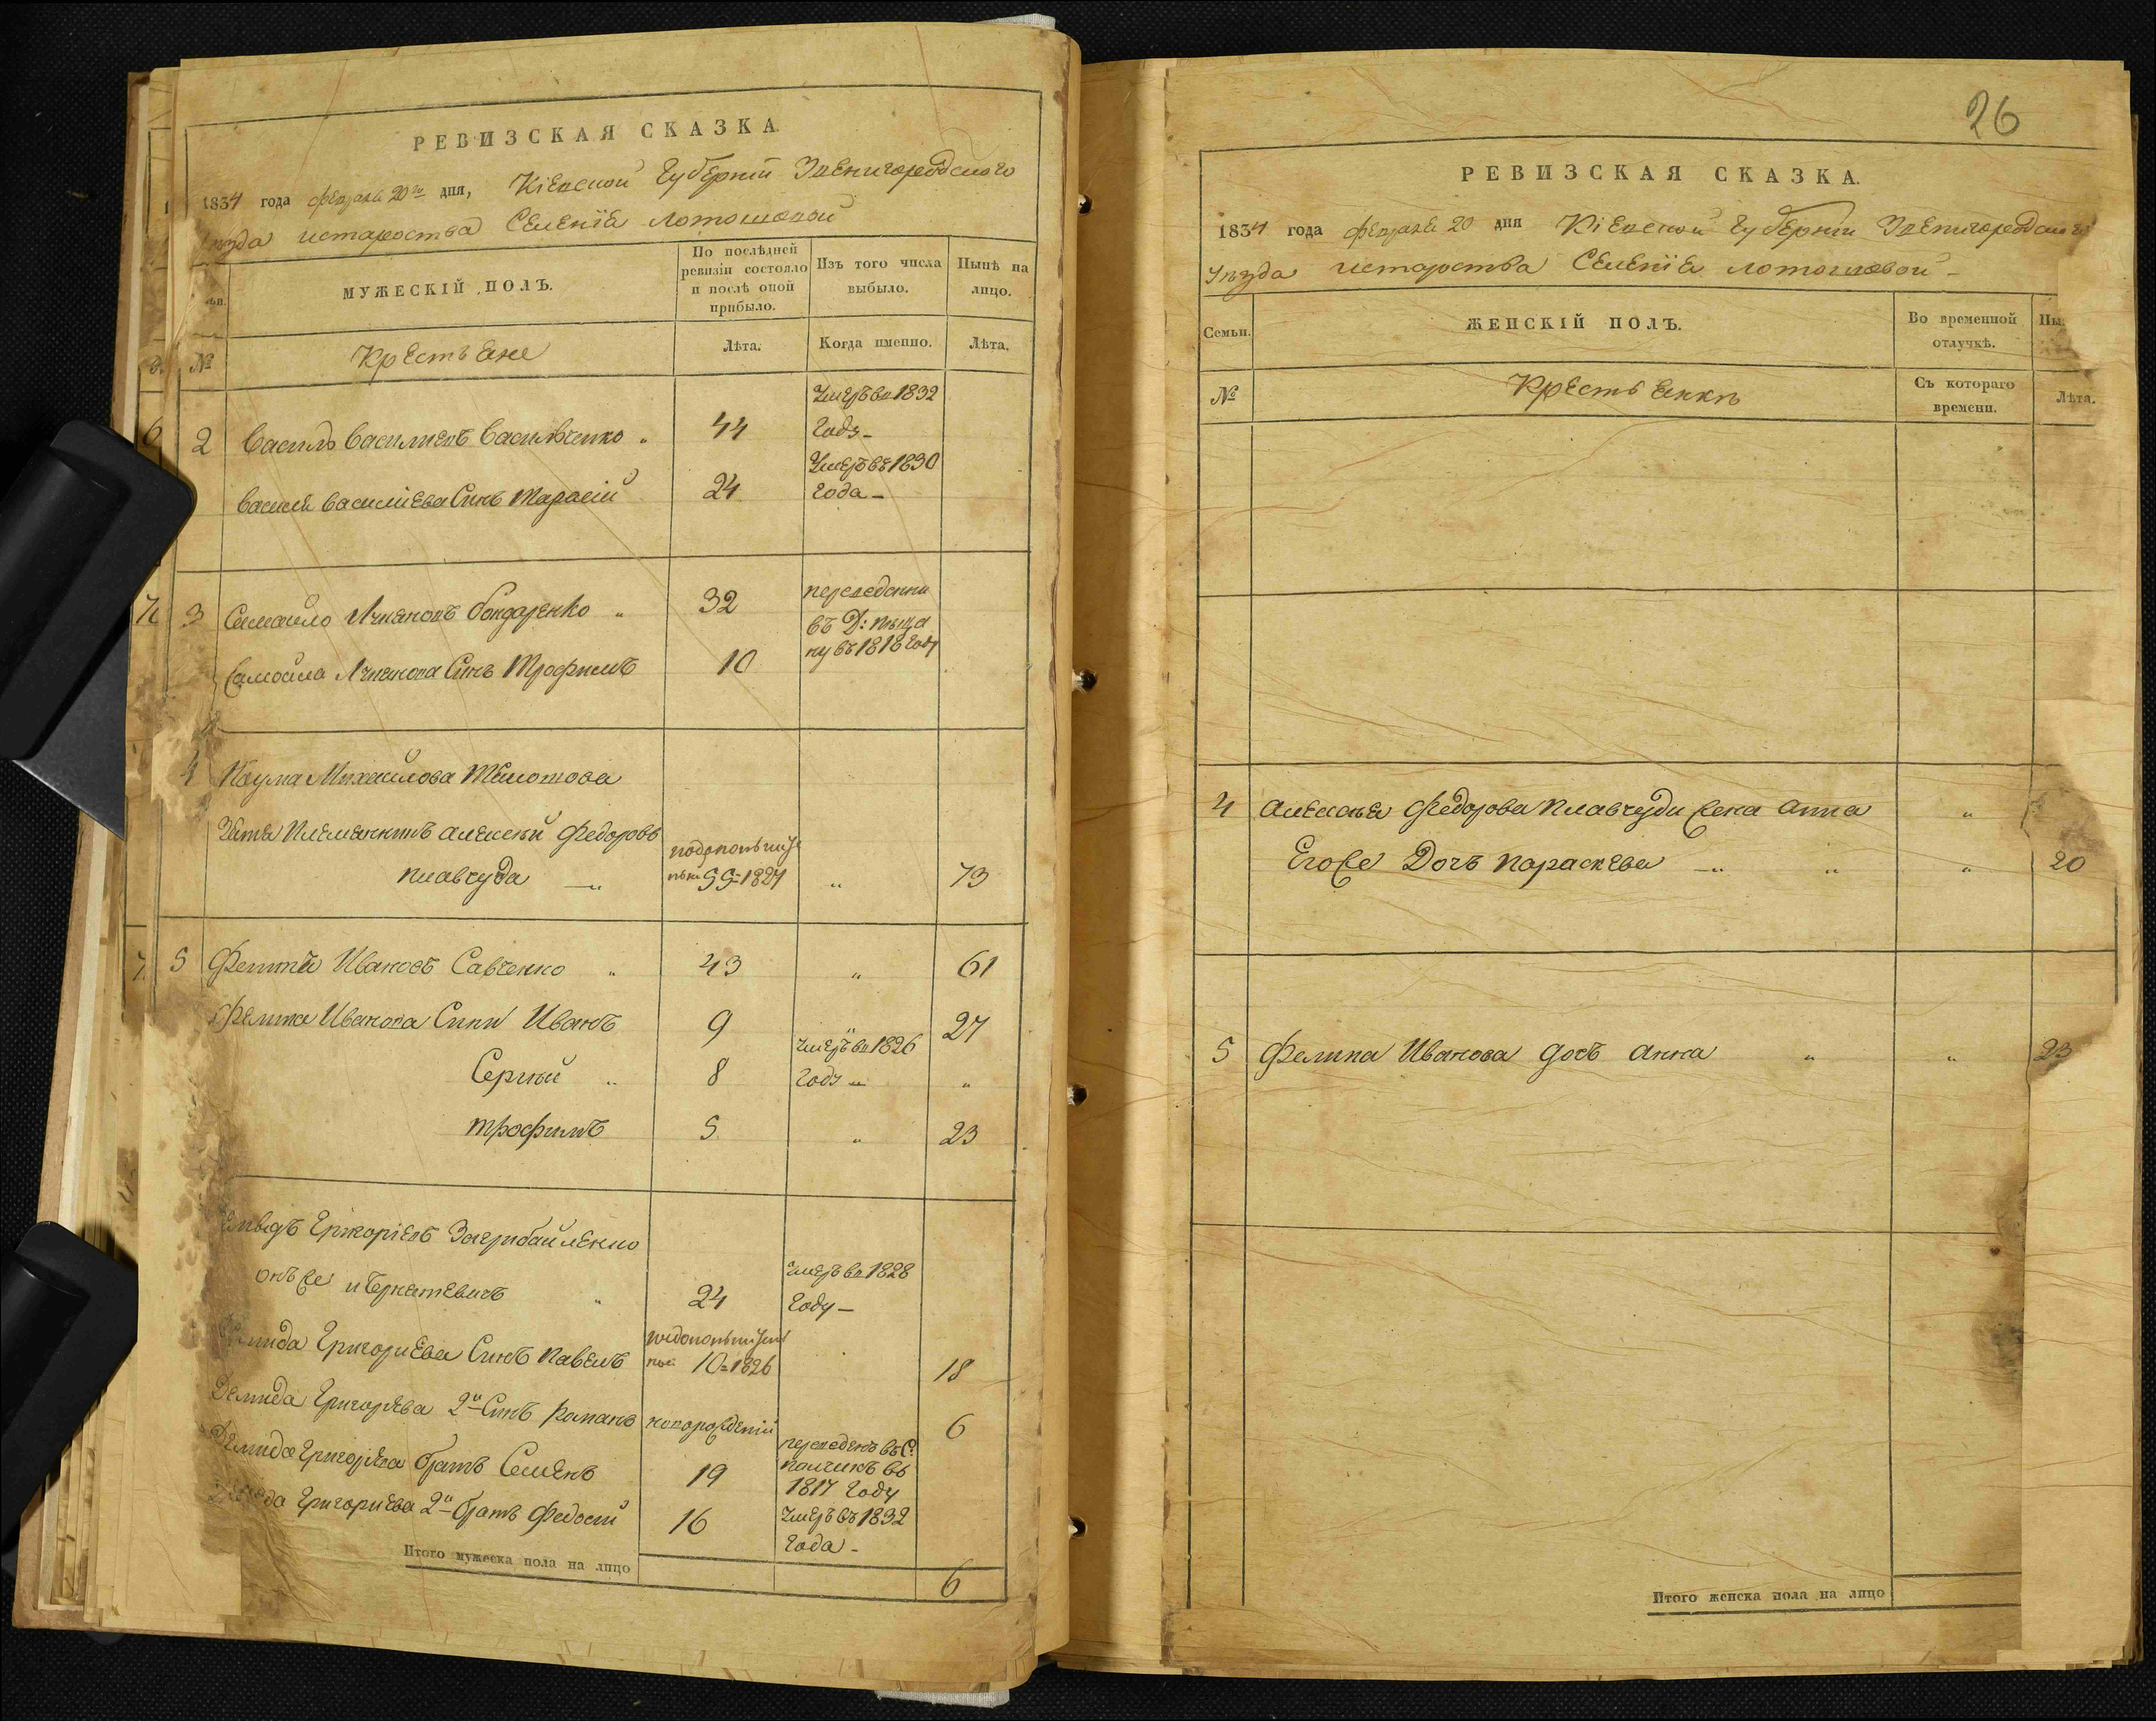 РЕВИЗСКАЯ СКАЗКА
1834 года февраля 20го дня, Кіевской Губерніи Звенигородского
Уезда Староства Селенія Лотошовой
МУЖЕСКІЙ ПОЛЪ.
По послѣдней
ревизіи состояло
и послѣ оной
прибыло.
Изъ того числа
выбыло.
Нынѣ на
лицо.
№
Крестьяне
Лѣта.
Когда именно.
Лѣта.
6
2
Василь Василиевъ Васильченко
44
Умеръ въ 1832
Году
Василя Василиева Синъ Тарасій
24
Умеръ въ 1830
Года
3
Самойло Бондаренко
32
переведенни
въ Д:
въ 1818 Году
Самойла Синъ Трофимъ
10
4
Наума Михайлова
Зятя Племенникъ Алексѣй Федоровъ
1827
73
7
5
Филипъ Ивановъ Савченко
43
61
Филипа Иванова Сини Иванъ
9
27
Сергий
8
Умеръ въ 1826
Году
трофимъ
5
23
Демидъ Григоріевъ
онъ же и
24
Умеръ въ 1828
Году
Демида Григориева Синъ Павелъ
10 1826
18
Демида Григорьева 2й Синъ Романъ
новорожденій
6
Демида Григорьева братъ Семенъ
19
переведенъ въ С:
въ
1817 Году
Демида Григориева 2й братъ Федосій
16
Умеръ въ 1832
Года
Итого мужеска пола на лицо
6
26
РЕВИЗСКАЯ СКАЗКА.
1834 года февраля 20 дня Кіевской Губерніи Звенигородского
Уезда Староства Селенія Лотошовой
Семьи.
ЖЕНСКІЙ ПОЛЪ.
Во временной
отлучкѣ.
Ны
№
Крестьянкы
Съ котораго
времени.
Лѣта.
4
Алексѣя Федорова Плавчуди жена Анна
Егоже Дочъ Параскева
20
5
Филипа Иванова дочъ Анна
23
Итого женска пола на лицо